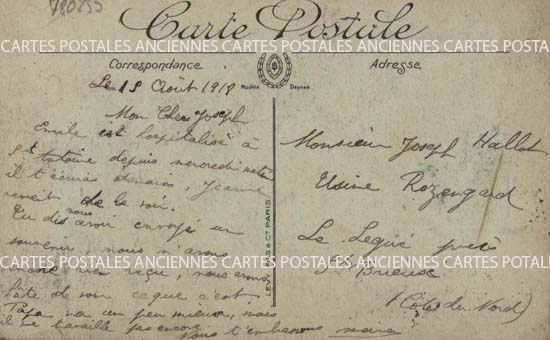 780255
Carte Postale
CARTES POSTALES ANCIENNES CARTES POSTALES ANCIENNES CARTES POSTALES
Correspondance
Adresse
Modèle Déposé
Le 18 Août 1918
Mon Cher Joseph
Emile est hospitalisé à
St Antoine depuis mercredi
il t'écrira demain, Jeanne
revient de le voir.
Tu dis nous avoir envoyé un
souvenir nous n'avons
rien reçu, nous avons
hâte de voir ce que c'est
Papa va un peu mieux, mais
il ne travaille pas encore
Nous t'embrassons
Monsieur Joseph Hallot
Usine Rozengard
Le Legué près
St Brieuc
(Côtes du Nord)
& Cie PARIS
CARTES POSTALES ANCIENNES CARTES POSTALES ANCIENNES CARTES POSTALES
CARTES POSTALES ANCIENNES CARTES POSTALES ANCIENNES CARTES POSTALES